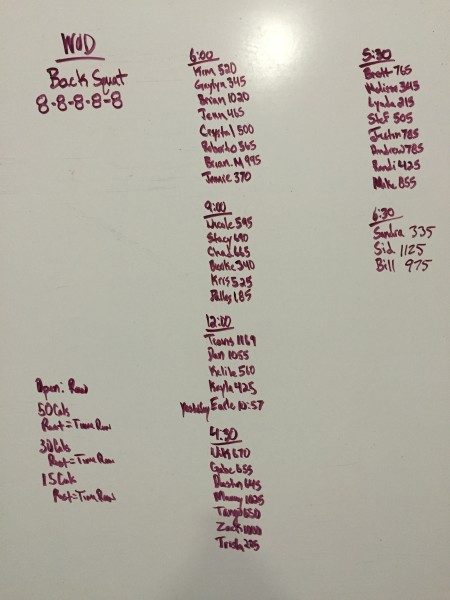 WOD
Back Squat
8-8-8-8-8
Open: Row
50 Cals
Rest = Time Row
30 Cals
Rest = Time Row
15 Cals
Rest = Time Row
6:00
Kim 520
Gaylyn 345
Brian 1020
Jenn 465
Crystal 500
Roberto 365
Brian.M 995
Jamie 370
9:00
Nicole 595
Stacy 690
Chaz 665
Brooke 340
Kris 525
Dallas 185
12:00
Travis 1169
Dan 1055
Kylie 560
Kayla 425
Yesterday Earle 10:57
4:30
670
Gabe 655
Dustin 645
Manny 1025
Tango 650
Zack 1000
Trisha
5:30
Brett 765
Melissa 345
Lynda 215
Stef 505
Justin 785
Andrew 785
Randi 425
Mike 855
6:30
Sandra 335
Sid 1125
Bill 975